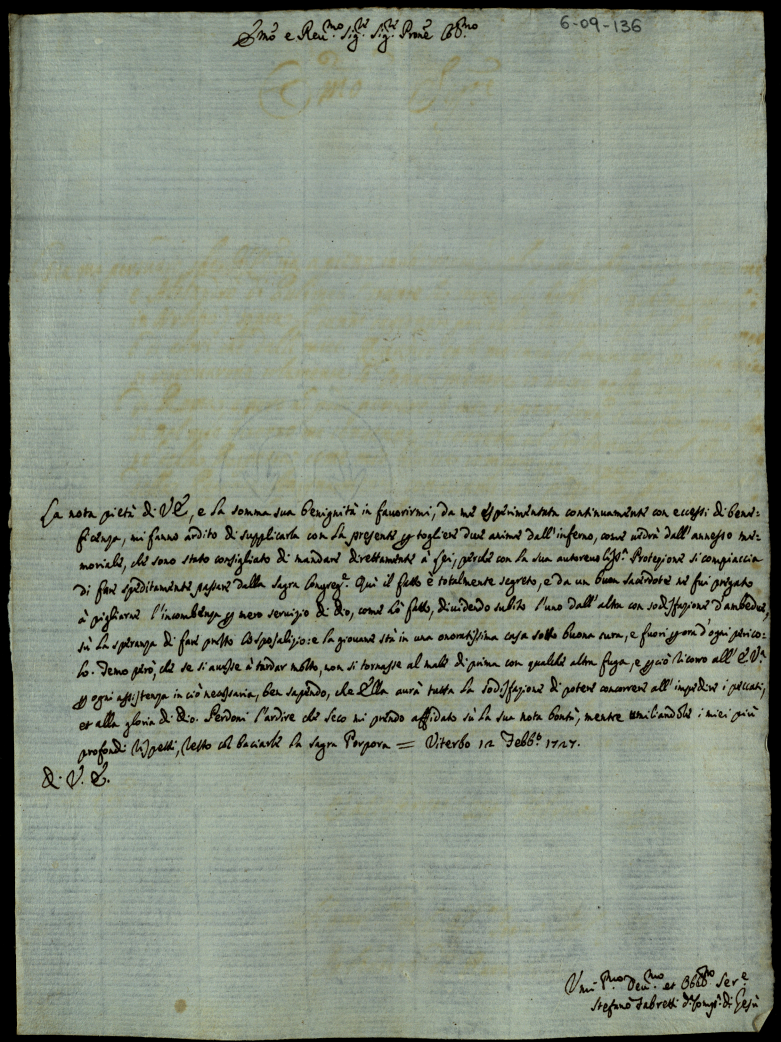 6-09-136
Emo e Reu.mo Sig.re Sig.re Prone Col.mo
La nota pietà di V.E., e la somma sua benignità in fauorirmi, da me esperimentata continuamente con eccessi di bene-
ficenza, mi fanno ardito di supplicarla con la presente per togliere due anime dall'inferno, come udirà dall'annesso me-
moriale, che sono stato consigliato di mandare direttamente à Lei, perche con la sua autoreuoliss.a Protezione si compiaccia
di fare speditamente passare dalla Sagra Congreg.e. Quì il fatto è totalmente segreto, e da un buon sacerdote ne fui pregato
à pigliarne l'incombenza per mero seruizio di Dio, come hò fatto, diuidendo subito l'uno dall'altra con sodisfazione d'ambedue,
sù la speranza di fare presto lo sposalizio: e la giouane stà in una onoratissima casa sotto buona cura, e fuori per ora d'ogni perico-
lo. Temo però, che se si auesse à tardar molto, non si tornasse al male di prima con qualche altra fuga, e perciò ricorro all'E.V.a
per ogni assistenza in ciò necessaria, ben sapendo, che Ella aurà tutta la sodisfazione di potere concorrere all'impedire i peccati,
et alla gloria di Dio. Perdoni l'ardire che seco mi prendo affidato sù la sua nota bontà, mentre umiliandole i miei più
profondi rispetti, resto col baciarle la Sagra Porpora = Viterbo 12 Febb.o 1727.
D. V. E.
Umi.mo Deu.mo et Obb.mo Ser.e
Stefano Fabretti d. Comp.a di Gesù